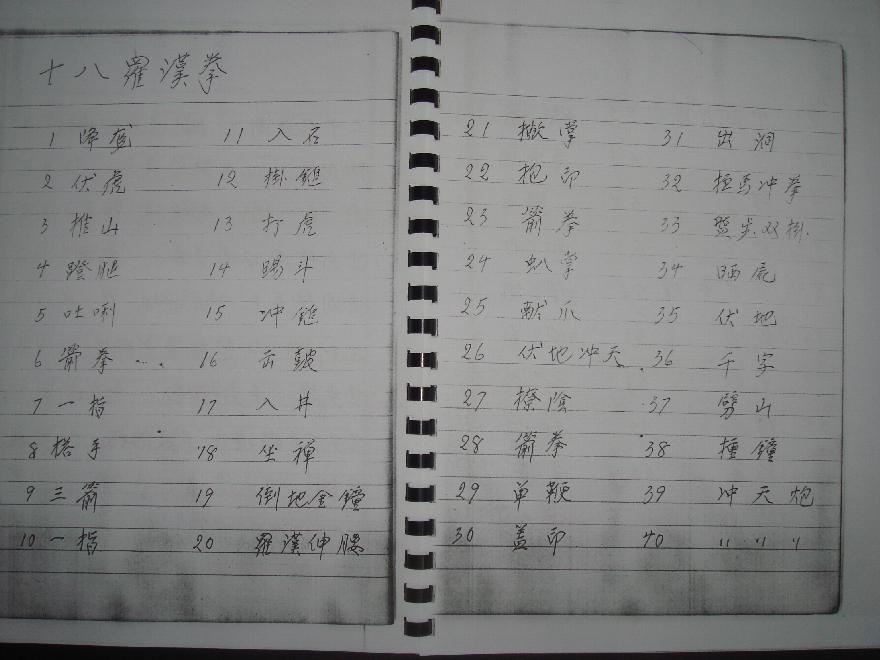 十八羅漢拳
1 降龙 11 入石
2 伏虎 12 掛鎚
3 推山 13 打虎
4 蹬腿 14 踢斗
5 吐唎 15 冲鎚
6 箭拳 16 击鼓
7 一指 17 入井
8 搭手 18 坐禅
9 三箭 19 倒地金鐘
10 一指 20 羅漢伸腰
21 撇掌 31 出洞
22 抱印 32 拦马冲拳
23 箭拳 33 盤步双掛
24 掌 34 晒屁
25 献爪 35 伏地
26 伏地冲天 36 千字
27 撩陰 37 劈山
28 箭拳 38 撞鐘
29 单鞭 39 冲天炮
30 盖印 40 〃 〃 〃